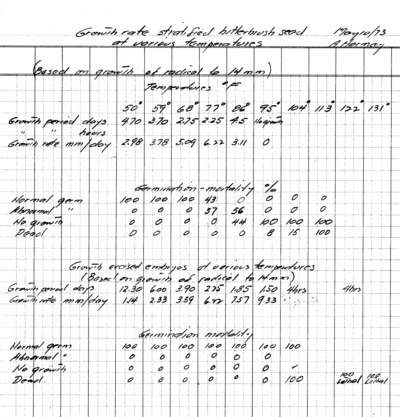 Growth rate stratified bitterbrush seed May 10/73
at various temperatures A Hormay
(Based on growth of radical to 14 mm)
Temperatures °F
50° 59° 68° 77° 86° 95° 104° 113° 122° 131°
Growth period days 4.70 3.70 2.75 2.25 4.5
" " hours
Growth rate mm/day 2.98 3.78 5.09 6.22 3.11 0
Germination-mortality %
Normal germ 100 100 100 43 0 0 0 0
Abnormal " 0 0 0 57 56 0 0 0
No growth 0 0 0 0 44 100 100 100
Dead 0 0 0 0 0 8 15 100
Growth excised embryos at various temperatures
(Based on growth of radical to 14mm)
Growth period days 12.30 6.00 3.90 2.75 1.85 1.50 4hrs 4hrs
Growth rate mm/day 1.14 2.33 3.59 7.57 9.33 "
Germination mortality
Normal germ 100 100 100 100 100 100 100
Abnormal " 0 0 0 0 0 0
No growth 0 0 0 0 0 0
Dead 0 0 0 0 0 0 100 100 100
Lethal Lethal